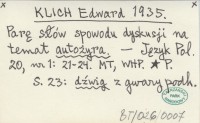 KLICH Edward 1935.
Parę słów spowodu dyskusji na
temat autożyra. — Język Pol.
20, nr 1: 21-24. MT, WHP. ★ P.
S. 23: dźwig z gwary podh.
BT/026.0007